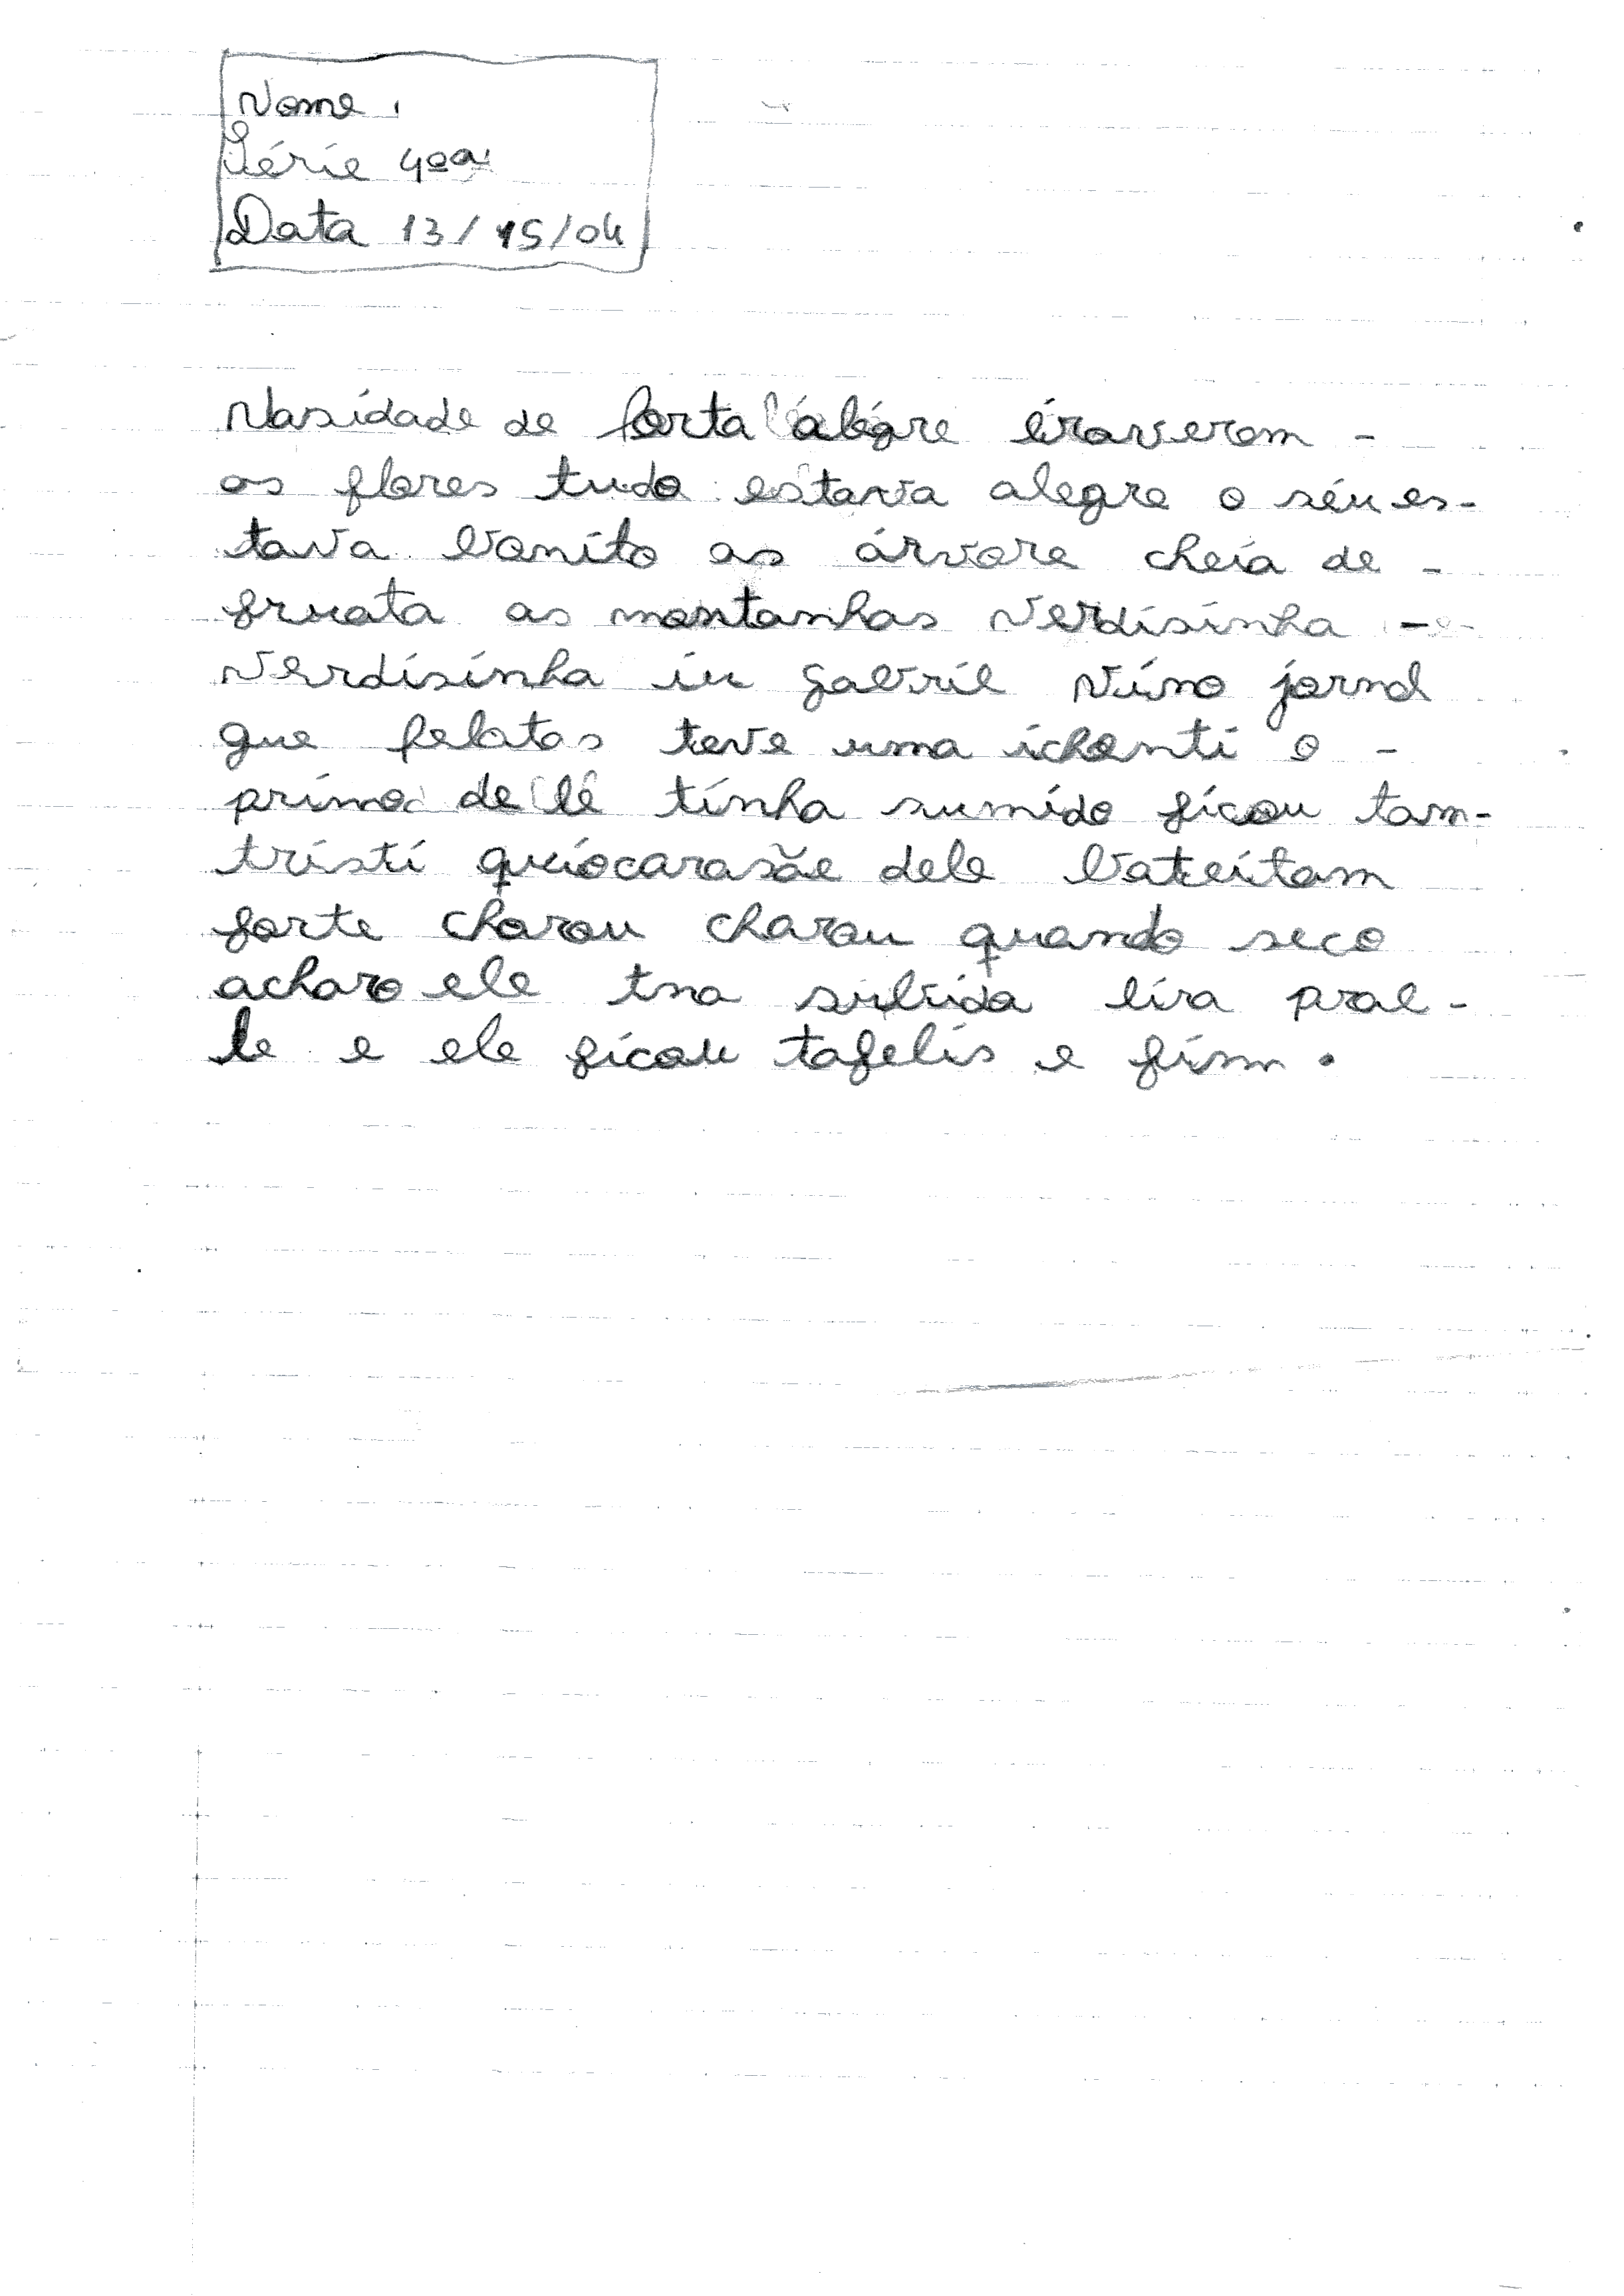 Nome
Série 4ºa
Data 13/15/04
Nasidade de porta alégre éraverom -
as flores tudo estava alegre o séu es-
tava bonito as árvore cheia de -
fruata as montanhas verdisinha -
verdisinha iu gabril viuno jornal
que pelotas teve uma ichenti o -
primo de lê tinha sumido ficou tam-
tristi quiocarasãe dele bateitam
forte chorou chorou quando seco
acharo ele tna subida lira prae-
le e ele ficou tafelis e fim.